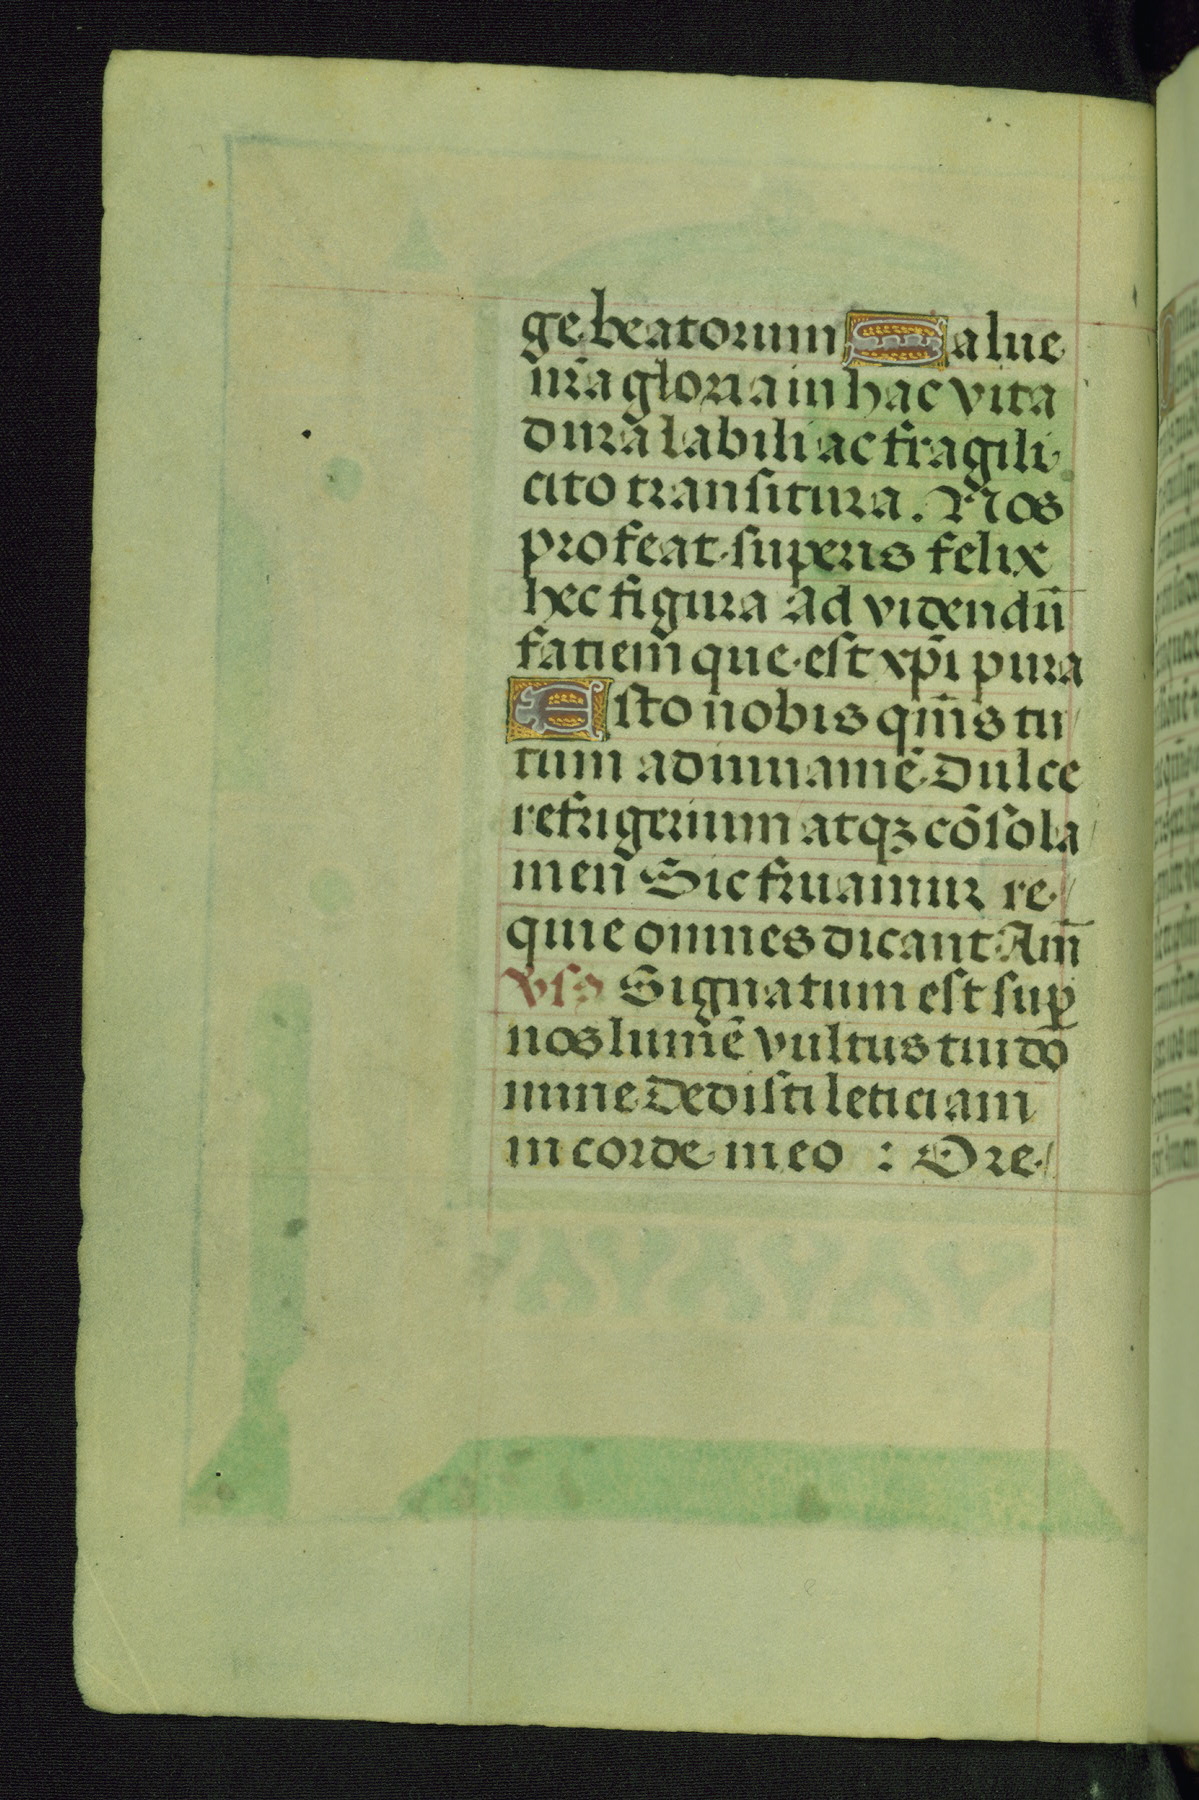 ge beatorum Salue
nr̃a gloria in hac vita
dura labili ac fragili
cito transitura. Nos
profeat superis felix
hec figura ad videndũ
faciem̃ que est xp̃i pura
Esto nobis qm̃s tu
tum adiuuamẽ Dulce
refrigerium atqꝫ cõsola
meñ Sic fruamur re
quie omnes dicant Am̃
vʳsꝰ Signatum est suꝑ
nos lumẽ vultus tui do
mine Dedisti leticiam
in corde meo : Ore